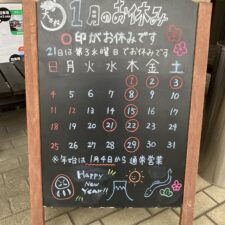 1月のお休み
○印がお休みです
21日は第3水曜日でお休みです
日 月 火 水 木 金 土
1 2 3
4 5 6 7 8 9 10
11 12 13 14 15 16 17
18 19 20 21 22 23 24
25 26 27 28 29 30 31
※年始は1月4日から通常営業
Happy
New
Year!!